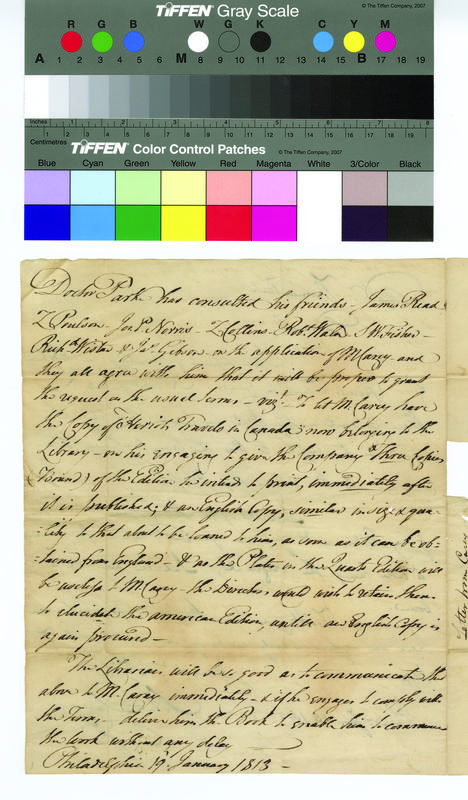 TIFFEN Gray Scale
© The Tiffen Company, 2007
R G B W G K C Y M
A 1 2 3 4 5 6 M 8 9 10 11 12 13 14 15 B 17 18 19
Inches 1 2 3 4 5 6 7 8
Centimetres 1 2 3 4 5 6 7 8 9 10 11 12 13 14 15 16 17 18 19
TIFFEN Color Control Patches
© The Tiffen Company, 2007
Blue Cyan Green Yellow Red Magenta White 3/Color Black
Doctor Parke has consulted his friends - James Read
Z Poulson - Jos. P. Norris - Z Collins - Robt. Waln S W Fisher -
Richd. Wistar & Jas. Gibson - on the application of M Carey and
they all agree with him that it will be proper to grant
the request on the usual terms - vizt. - To let M. Carey have
the Copy of Heriots Travels in Canada, now belonging to the
Library - on his engaging to give the Company Three Copies
(bound) of the Edition he intends to print, immediately after
it is published, & an English Copy, similar in size & qua-
-lity to that about to be loaned to him, as soon as it can be ob-
-tained from England - & as the Plates in the Quarto Edition will
be useless to M Carey - the Directors would wish to retain them
to elucidate the american Edition, untill an English Copy is
again procured -
The Librarian will be so good as to communicate the
above to M. Carey immediately - & if he engages to comply with
the Terms - deliver him the Book to enable him to commence
the work without any delay
Philadelphia 19. January 1813 -
Letter from Carey